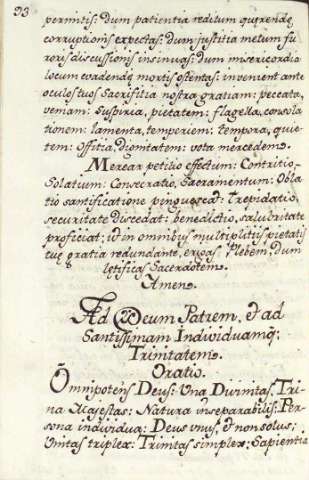 93
permittis: dum patientia reditum quęrendę
corruptionis expectas: dum justitia metum fu
roris discussionis insinuas: dum misericordia
locum evadendę mortis ostentas: invenient ante
oculos tuos Sacrifitia nostra gratiam: peccata,
veniam: Suspiria, pietatem: flagella, consola
tionem: lamenta, temperiem: tempora, quie
tem: Offitia, dignitatem: vota mercedem.
Merear petitio effectum: Contritio,
Solatium: Consecratio, Sacramentum: Obla
tio santificatione pinguescat: Trepidatio,
securitate discedat: benedictio, salubritate
proficiat; ut in omnibus multiplitiis pietatis
tuę gratia redundante, erigas Plebem, dum
lętificas Sacerdotem.
Amen.
Ad Deum Patrem, et ad
Santissimam Individuamq;
Trinitatem.
Oratio.
Omnipotens Deus: Una Divinitas, Tri-
na Majestas: Natura inseparabilis: Per
sona individua: Deus unus, et non solus;
Unitas triplex: Trinitas simplex; Sapientia